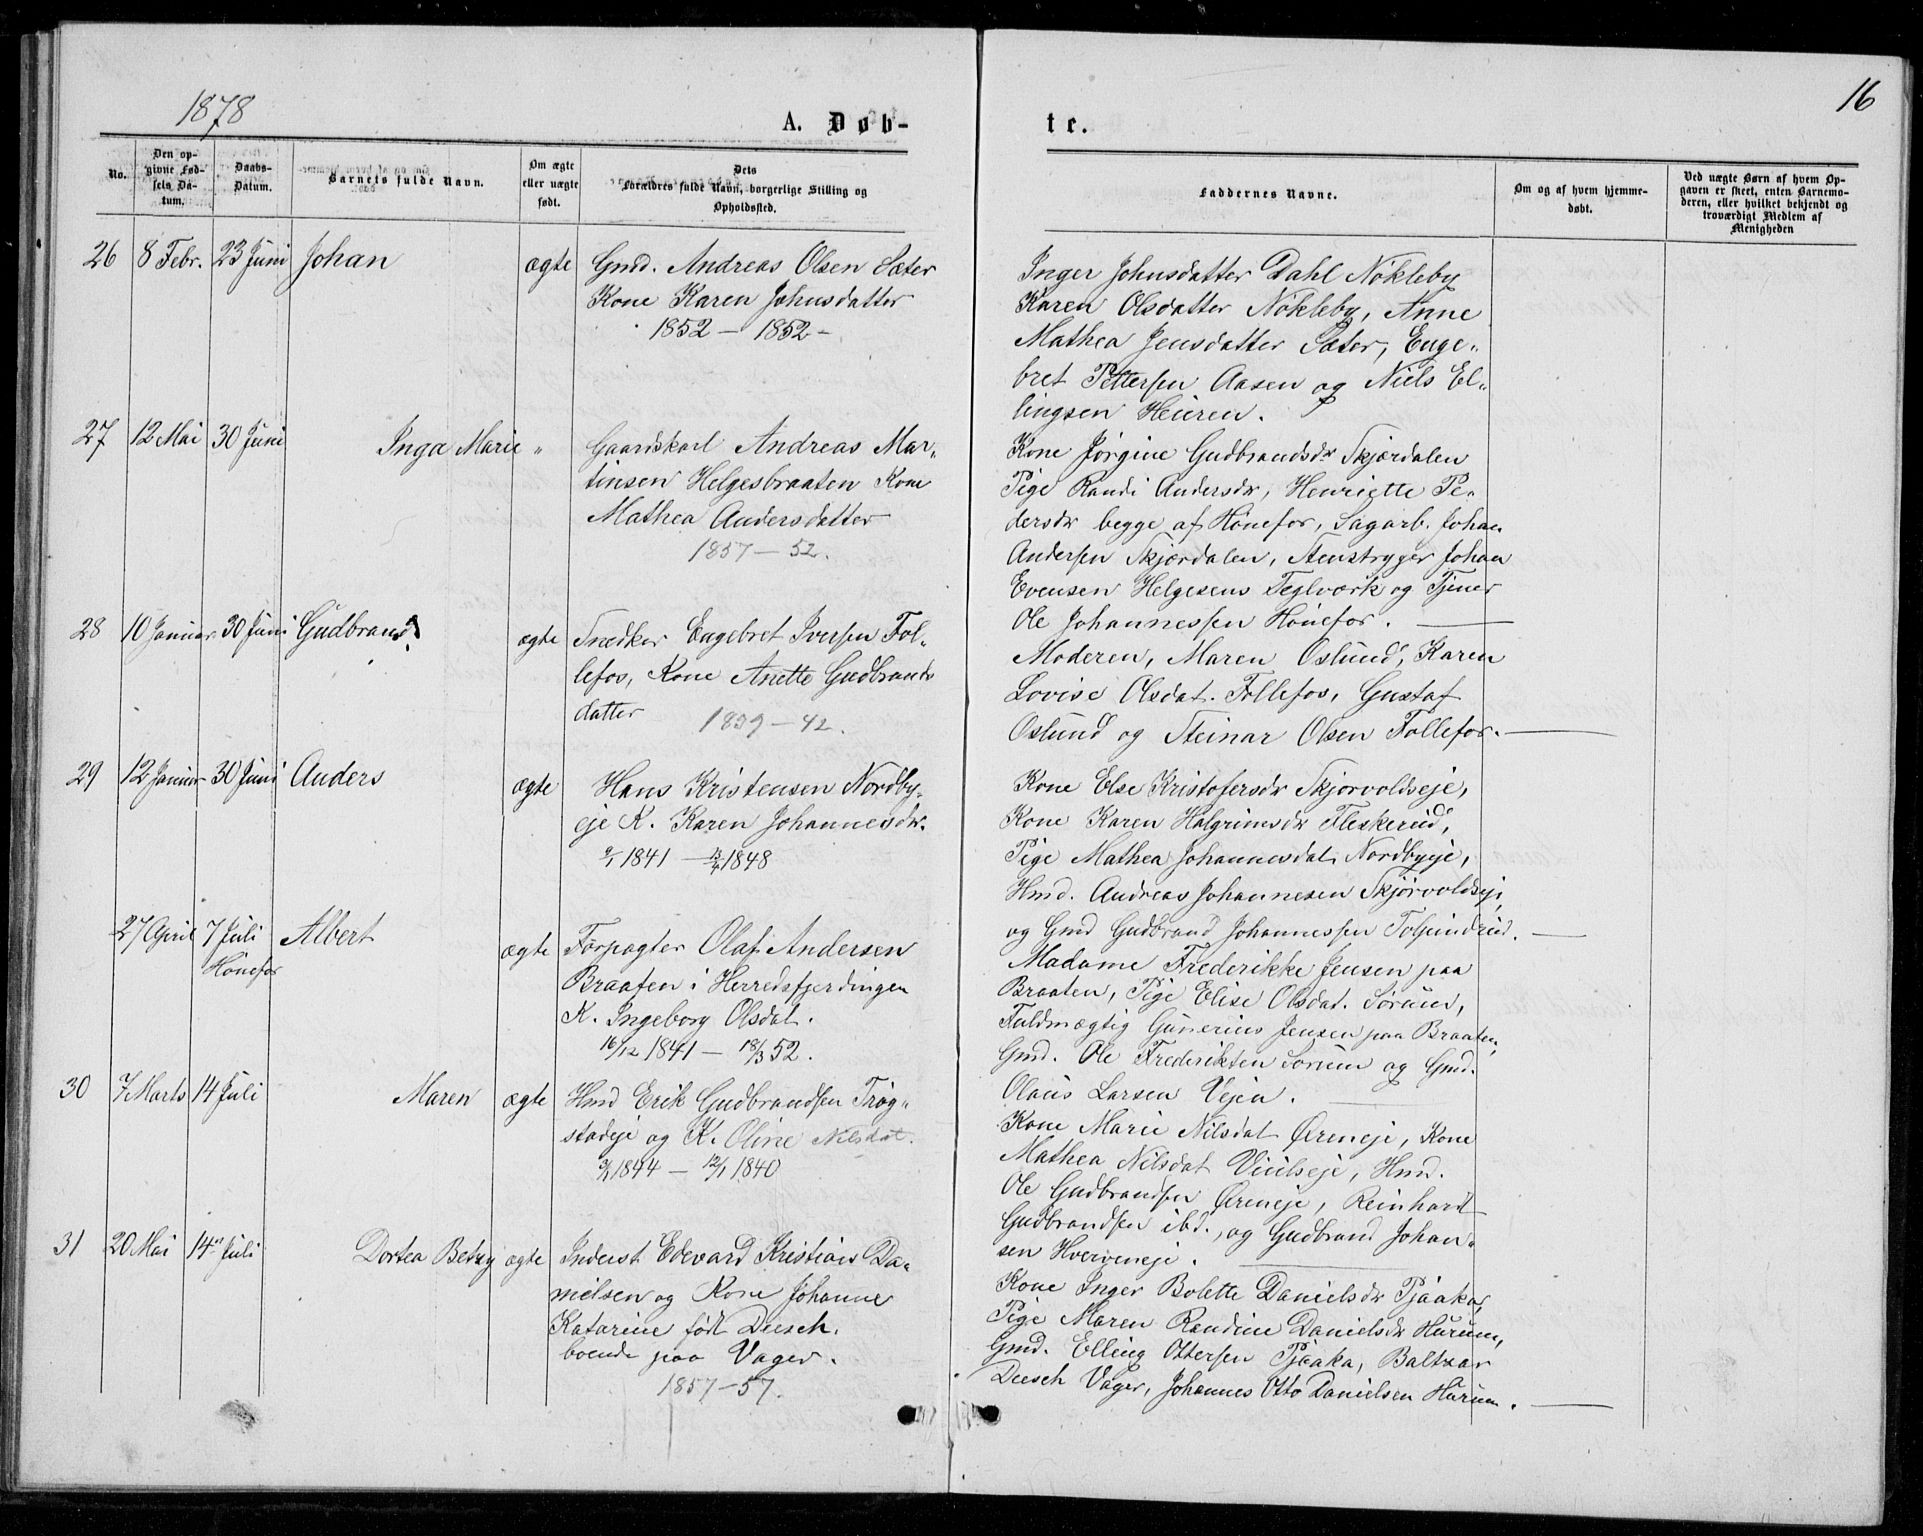 1878
16
A. Døb-
te.
No.
Den op-
givne Fød-
sels Da-
tum.
Daabs-
Datum.
Barnets fulde Navn.
Om ægte
eller uægte
født.
Dets
Forældres fulde Navn, borgerlige Stilling og
Opholdssted.
Faddernes Navne.
Om og af hvem hjemme-
døbt.
Ved uægte Børn af hvem Op-
gaven er skeet, enten Barnemo-
deren, eller hvilket bekjendt og
troværdigt Medlem af
Menigheden
26 8 Febr. 23 Juni Johan ægte Gmd. Andreas Olsen Sæter
Kone Karen Johnsdatter
1852 – 1852 –
Inger Johnsdatter Dahl Nökleby
Karen Olsdatter Nökleby, Anne
Mathea Jensdatter Sæter, Enge-
bret Pettersen Aasen og Niels El-
lingsen Heieren.
27 12 Mai 30 Juni Inga Marie " Gaardskarl Andreas Mar-
tinsen Helgesbraaten Kone
Mathea Andersdatter
1857 – 52.
Kone Jørgine Gudbrandsdr Skjærdalen
Pige Randi Andersdr, Henriette Pe-
dersdr begge af Hönefos, Sagarb. Johan
Andersen Skjærdalen, Stenstryger Johan
Evensen Helgesens Teglværk og Tjener
Ole Johannessen Hönefos.
28 10 Januar 30 Juni Gudbrand ægte Snedker Engebret Iversen Fol-
lefos, Kone Anette Gudbrands
datter 1839 – 42.
Moderen, Maren Oslund, Karen
Lovise Olsdat. Follefos, Gustaf
Oslund og Steinar Olsen Follefos.
29 12 Januar 30 Juni Anders ægte Hans Kristensen Nordby-
eje K. Karen Johannesdr.
1841 – 1848
Kone Else Kristofersdr Skjörvoldseje,
Kone Karen Halgrimsdr Fleskerud,
Pige Mathea Johannesdat. Nordbyeje,
Hmd. Andreas Johannesen Skjörvoldseje,
og Gmd Gudbrand Johannessen Tolpinrud.
27 April 7 Juli Albert ægte Forpagter Olaf Andersen
Hönefos
Braaten i Herredsfjerdingen
K. Ingeborg Olsdat.
16/12 1841 – 18/3 52.
Madame Frederikke Jensen paa
Braaten, Pige Elise Olsdat. Sørum,
Fuldmægtig Gunerius Jensen paa Braaten,
Gmd. Ole Frederiksen Sorum og Gmd.
Olaus Larsen Vejen.
30 7 Marts 14 Juli Maren ægte Hmd Erik Gudbrandsen Trög-
stadeje og K. Oline Nilsdat.
1844 – 12/1 1840
Kone Marie Nilsdat Øreneje, Kone
Mathea Nilsdat Viulseje, Hmd.
Ole Gudbrandsen Øreneje, Reinhard
Gudbrandsen ibd., og Gudbrand Johan-
sen Hverveneje.
31 20 Mai 14 Juli Dortea Betzy ægte Inderst Edevard Kristians Da-
nielsen og Kone Johanne
Katarine født Deesch.
boende paa Vager.
1857 – 57.
Kone Inger Bolette Danielsdr Pjaaka,
Pige Maren Randine Danielsdr Hurum,
Gmd. Elling Ottersen Pjaaka, Baltzar
Deesch Vager, Johannes Otto Danielsen Hurum.